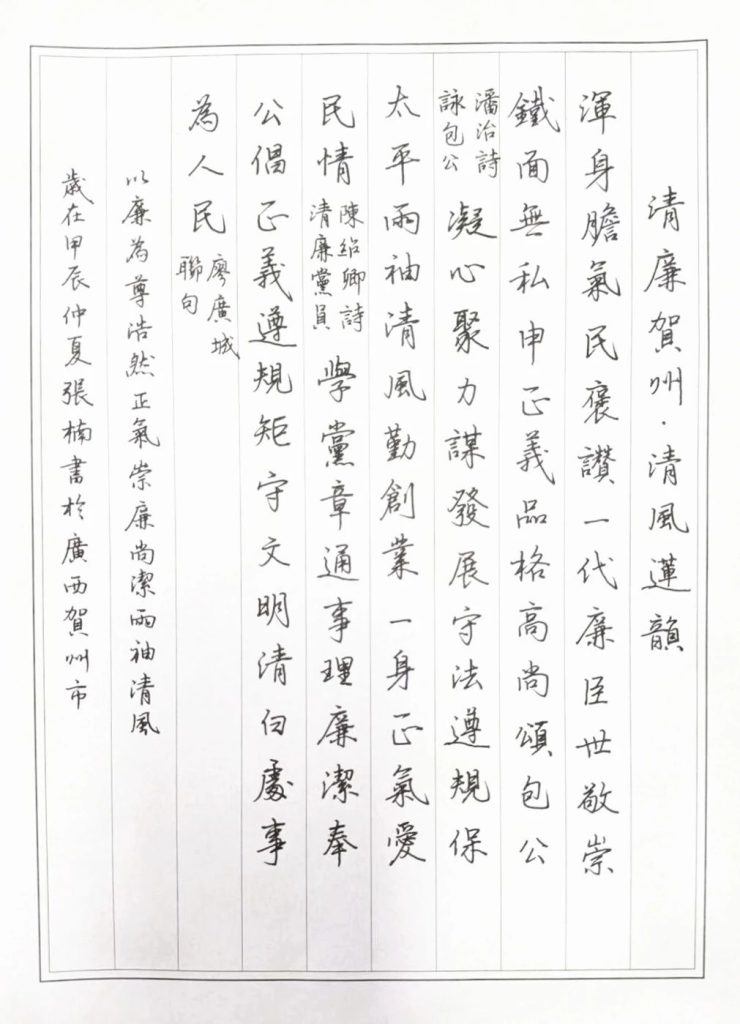 清廉賀州·清風蓮韻
渾身膽氣民褒讚一代廉臣世敬崇
鐵面無私申正義品格高尚頌包公
潘治詩
詠包公
凝心聚力謀發展守法遵規保
太平兩袖清風勤創業一身正氣愛
民情
陳紹卿詩
清廉黨員
學黨章通事理廉潔奉
公倡正義遵規矩守文明清白處事
為人民
廖廣城
聯句
以廉為尊浩然正氣崇廉尚潔兩袖清風
歲在甲辰仲夏張楠書於廣西賀州市